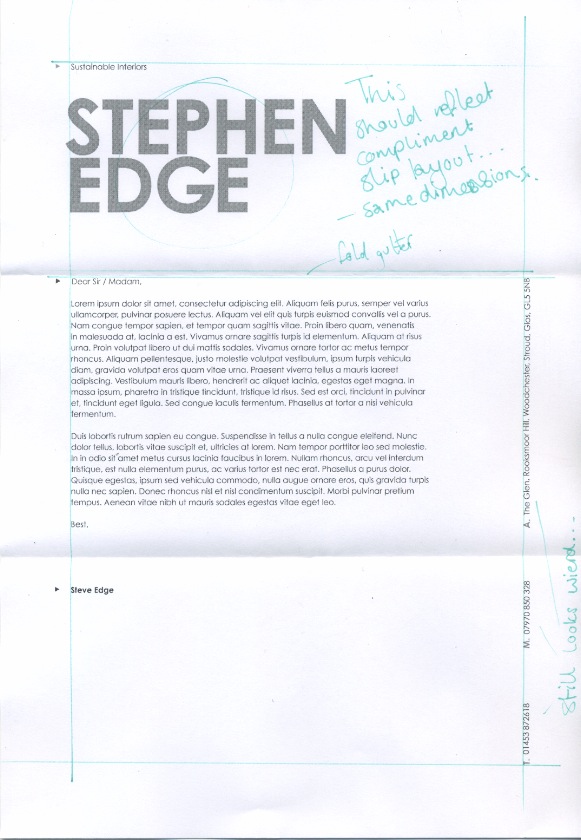 Sustainable Interiors
STEPHEN
EDGE
This
should reflect
compliment
slip layout...
- same dimensions.
fold gutter
Dear Sir / Madam,
Lorem ipsum dolor sit amet, consectetur adipiscing elit. Aliquam felis purus, semper vel varius
ullamcorper, pulvinar posuere lectus. Aliquam vel elit quis turpis euismod convallis vel a purus.
Nam congue tempor sapien, et tempor quam sagittis vitae. Proin libero quam, venenatis
in malesuada at, lacinia a est. Vivamus ornare sagittis turpis id elementum. Aliquam at risus
urna. Proin volutpat libero ut dui mattis sodales. Vivamus ornare tortor ac metus tempor
rhoncus. Aliquam pellentesque, justo molestie volutpat vestibulum, ipsum turpis vehicula
diam, gravida volutpat eros quam vitae urna. Praesent viverra tellus a mauris laoreet
adipiscing. Vestibulum mauris libero, hendrerit ac aliquet lacinia, egestas eget magna. In
massa ipsum, pharetra in tristique tincidunt, tristique id risus. Sed est orci, tincidunt in pulvinar
et, tincidunt eget ligula. Sed congue iaculis fermentum. Phasellus at tortor a nisi vehicula
fermentum.
Duis lobortis rutrum sapien eu congue. Suspendisse in tellus a nulla congue eleifend. Nunc
dolor tellus, lobortis vitae suscipit et, ultricies at lorem. Nam tempor porttitor leo sed molestie.
In in odio sit amet metus cursus lacinia faucibus in lorem. Nullam rhoncus, arcu vel interdum
tristique, est nulla elementum purus, ac varius tortor est nec erat. Phasellus a purus dolor.
Quisque egestas, ipsum sed vehicula commodo, nulla augue ornare eros, quis gravida turpis
nulla nec sapien. Donec rhoncus nisl et nisl condimentum suscipit. Morbi pulvinar pretium
tempus. Aenean vitae nibh ut mauris sodales egestas vitae eget leo.
Best,
Steve Edge
A. The Glen, Rooksmoor Hill, Woodchester, Stroud, Glos, GL5 5NB
M. 07970 850 328
T. 01453 872618
Still looks wierd...